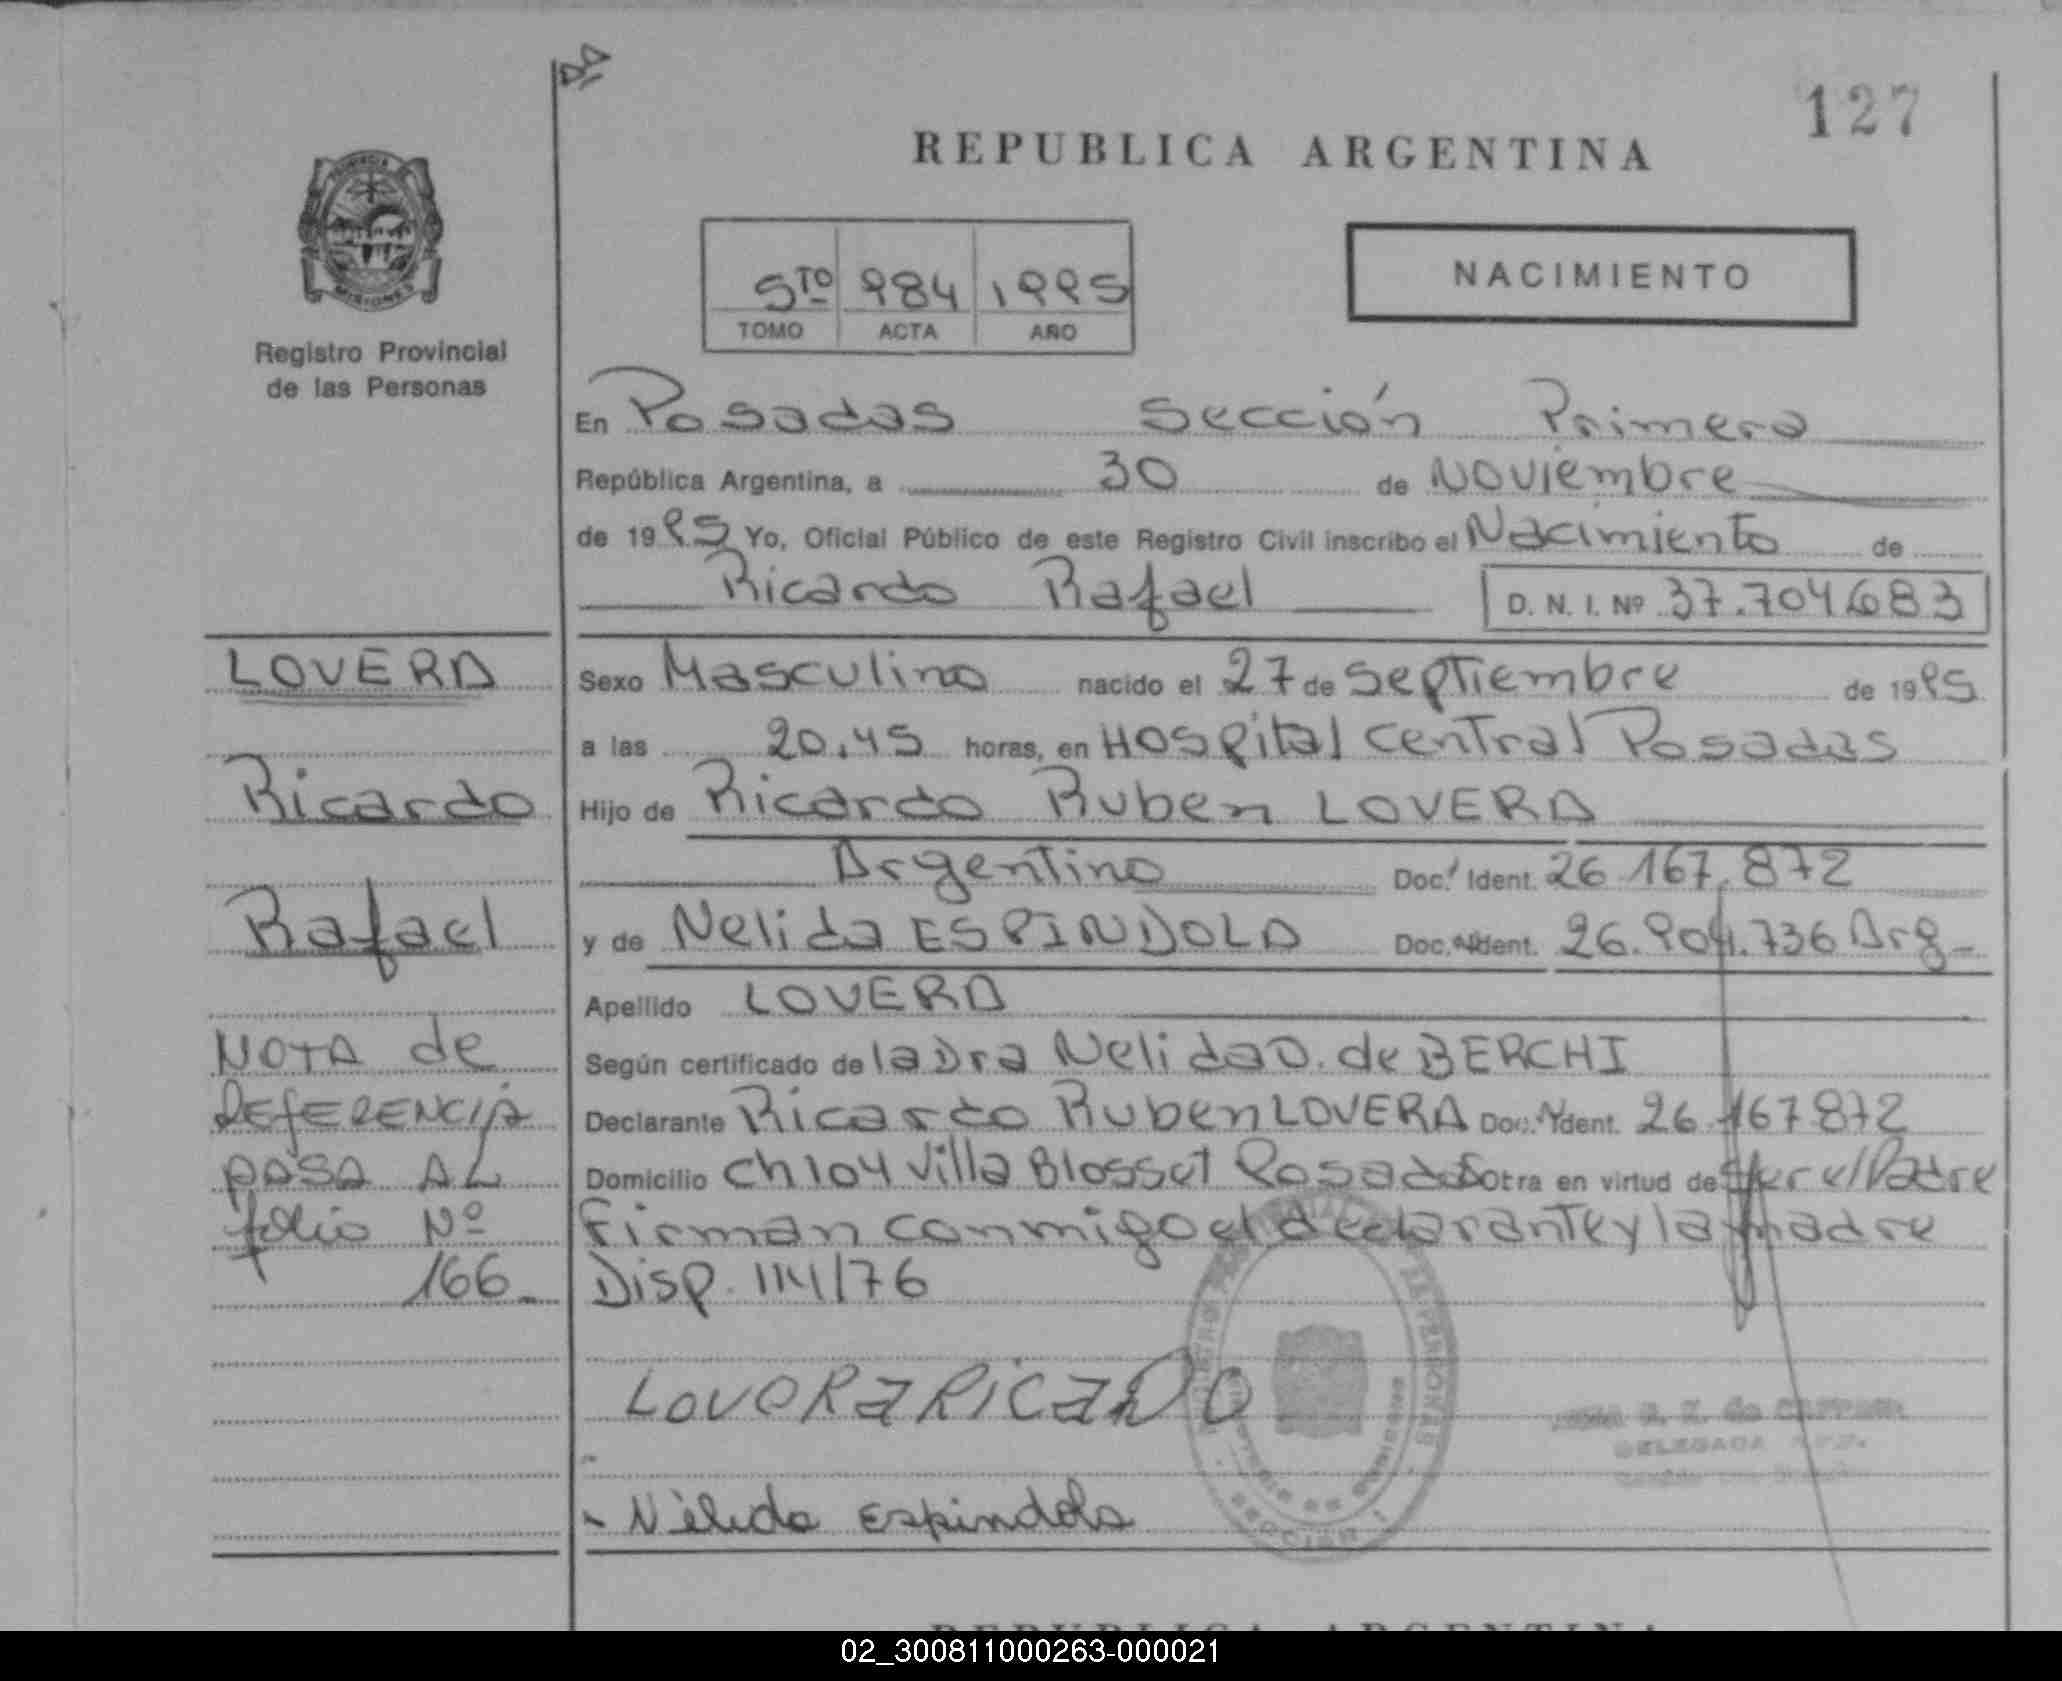 127
REPUBLICA ARGENTINA
MISIONES
Registro Provincial
de las Personas
5TO 984 1995
TOMO ACTA AÑO
NACIMIENTO
En Posadas Sección Primera
República Argentina, a 30 de Noviembre
de 1995 Yo, Oficial Público de este Registro Civil inscribo el Nacimiento de
Ricardo Rafael D. N. I. Nº 37.704.683
LOVERA
Ricardo
Rafael
NOTA de
REFERENCIA
PASA AL
folio Nº
166-
Sexo Masculino nacido el 27 de Septiembre de 1995
a las 20.45 horas, en Hospital Central Posadas
Hijo de Ricardo Ruben LOVERA
Argentino Doc. Ident. 26.167.872
y de Nelida ESPINDOLA Doc. Ident. 26.904.736 Arg-
Apellido LOVERA
Según certificado de la Dra Nelida O. de BERCHI
Declarante Ricardo Ruben LOVERA Doc. Ident. 26.167872
Domicilio Ch 104 Villa Blosset Posadas Obra en virtud de Ser el Padre
Firman conmigo el declarante y la madre
Disp. 1141/76
LOVERA RICADO
Nélida Espindola
DELEGADA
REPUBLICA ARGENTINA
02_300811000263-000021